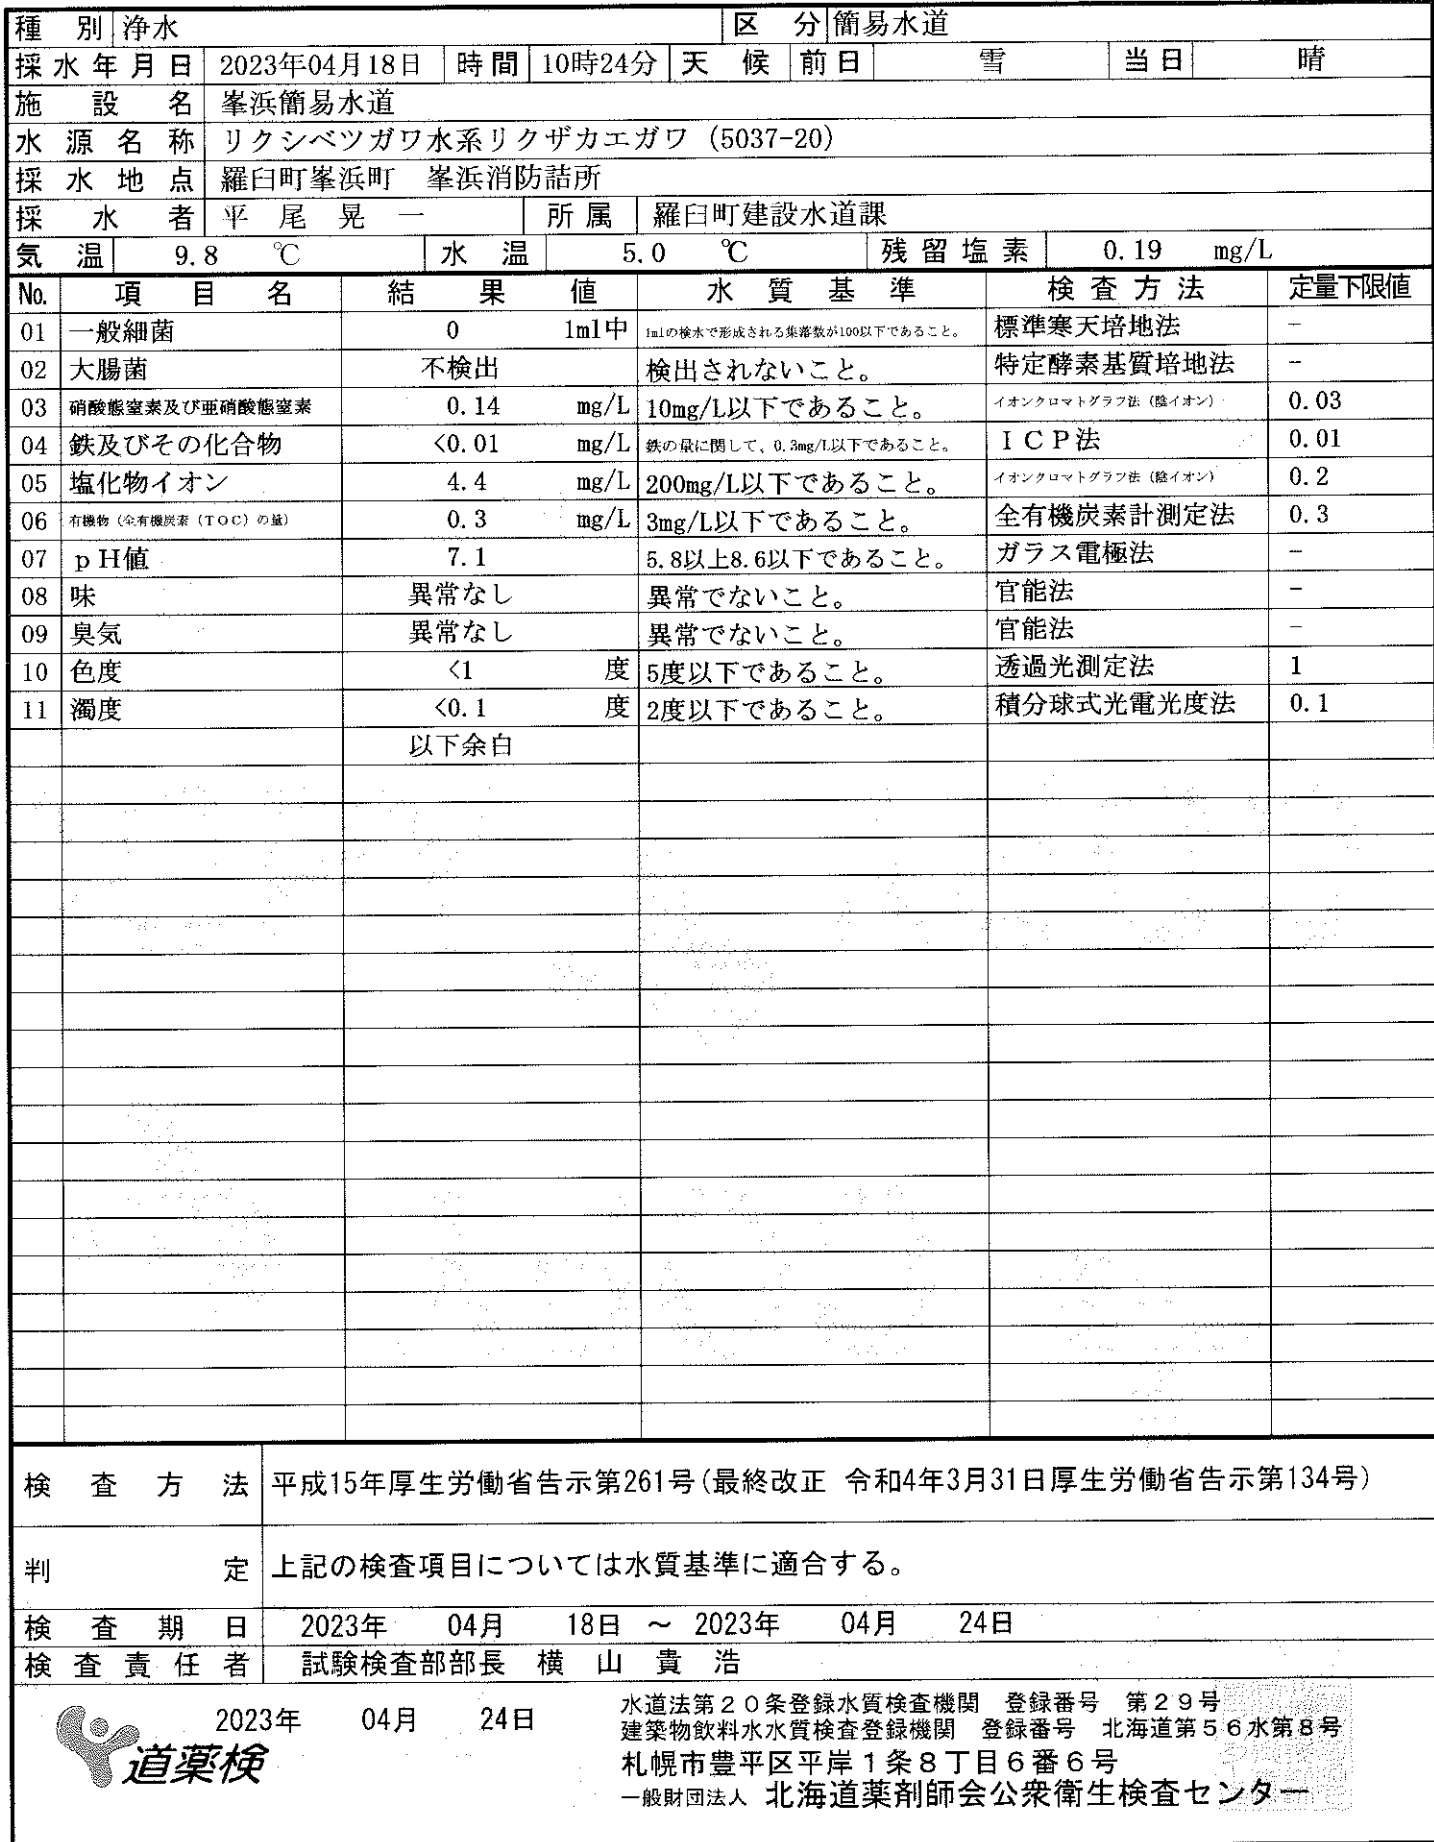 種別 浄水 区分 簡易水道
採水年月日 2023年04月18日 時間 10時24分 天候 前日 雪 当日 晴
施設名 峯浜簡易水道
水源名称 リクシベツガワ水系リクザカエガワ (5037-20)
採水地点 羅臼町峯浜町 峯浜消防詰所
採水者 平尾晃一 所属 羅臼町建設水道課
気温 9.8 ℃ 水温 5.0 ℃ 残留塩素 0.19 mg/L
No. 項目名 結果値 水質基準 検査方法 定量下限値
01 一般細菌 0 1ml中 1mlの検水で形成される集落数が100以下であること。 標準寒天培地法 －
02 大腸菌 不検出 検出されないこと。 特定酵素基質培地法 －
03 硝酸態窒素及び亜硝酸態窒素 0.14 mg/L 10mg/L以下であること。 イオンクロマトグラフ法（陰イオン） 0.03
04 鉄及びその化合物 <0.01 mg/L 鉄の量に関して、0.3mg/L以下であること。 ＩＣＰ法 0.01
05 塩化物イオン 4.4 mg/L 200mg/L以下であること。 イオンクロマトグラフ法（陰イオン） 0.2
06 有機物（全有機炭素（ＴＯＣ）の量） 0.3 mg/L 3mg/L以下であること。 全有機炭素計測定法 0.3
07 ｐＨ値 7.1 5.8以上8.6以下であること。 ガラス電極法 －
08 味 異常なし 異常でないこと。 官能法 －
09 臭気 異常なし 異常でないこと。 官能法 －
10 色度 <1 度 5度以下であること。 透過光測定法 1
11 濁度 <0.1 度 2度以下であること。 積分球式光電光度法 0.1
以下余白
検査方法 平成15年厚生労働省告示第261号(最終改正 令和4年3月31日厚生労働省告示第134号)
判定 上記の検査項目については水質基準に適合する。
検査期日 2023年 04月 18日 ～ 2023年 04月 24日
検査責任者 試験検査部部長 横山貴浩
水道法第２０条登録水質検査機関 登録番号 第２９号
2023年 04月 24日
建築物飲料水水質検査登録機関 登録番号 北海道第５６水第８号
道薬検
札幌市豊平区平岸１条８丁目６番６号
一般財団法人 北海道薬剤師会公衆衛生検査センター